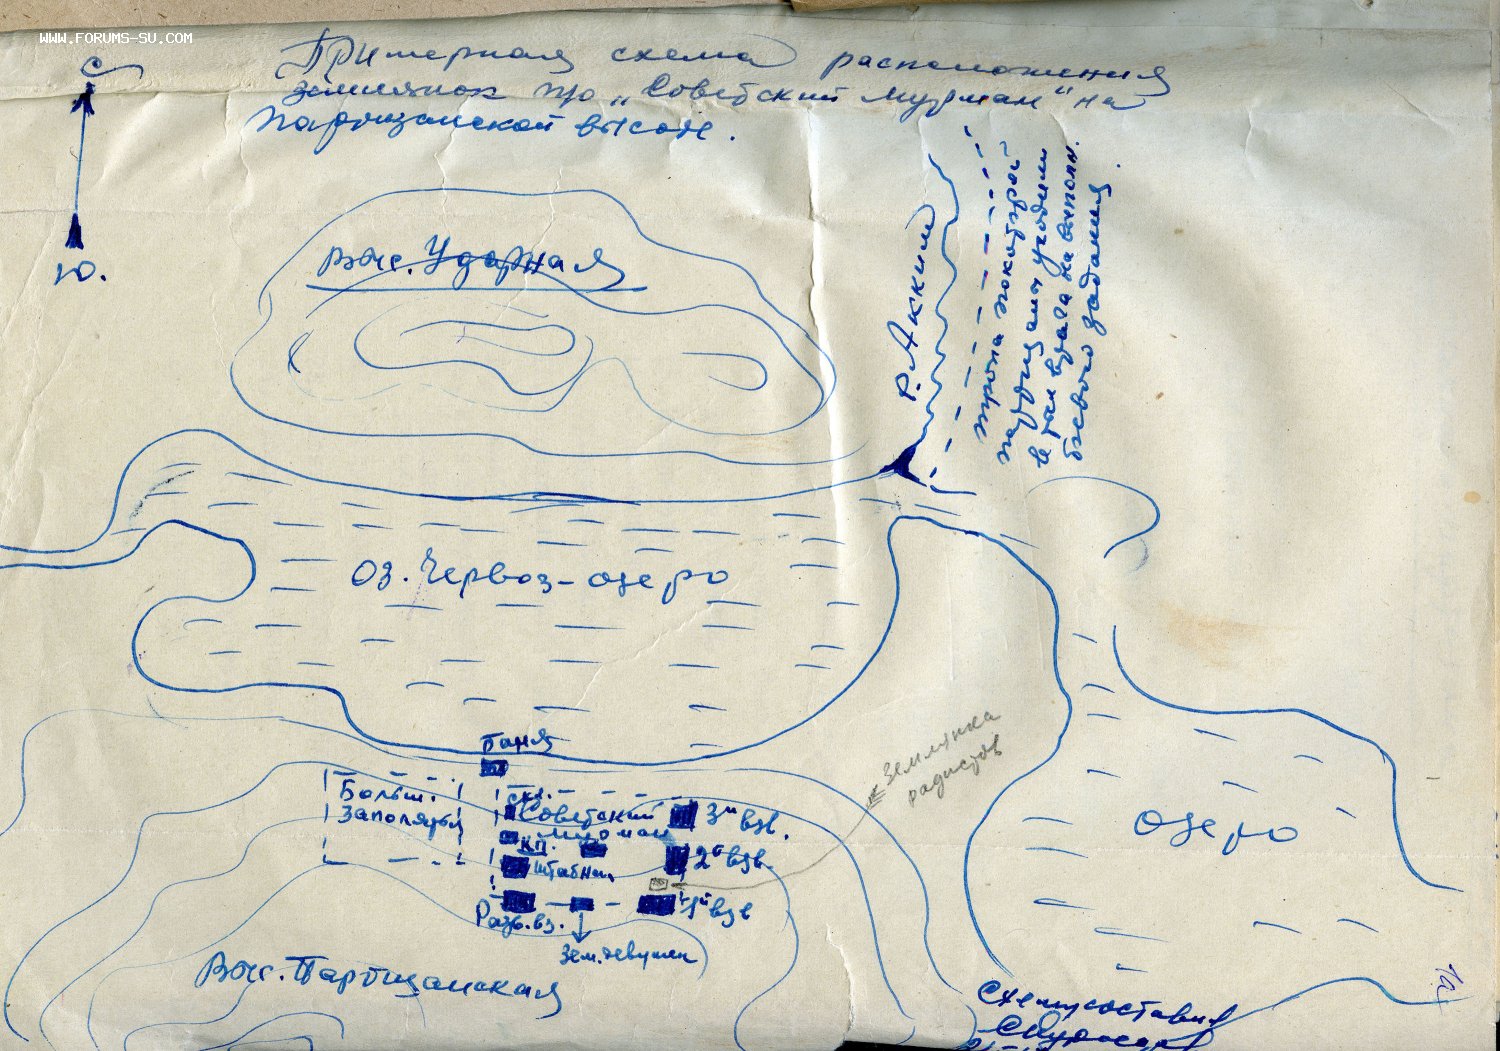 WWW.FORUMS-SU.COM
С
Ю.
Примерная схема расположения
землянок п/о „Советский Мурман" на
Партизанской высоте.
Выс. Ударная
Р. Акким
тропа по которой
партизаны уходили
в тыл врага на выполн.
боевого задания.
Оз. Червоз-озеро
баня
Больш.
Заполярья
скл.
Советский
Мурман
КП.
Штабная
Разв. вз.
Зем. девушек
3й взв.
2й взв.
1й взв
Землянка
радистов
озеро
Выс. Партизанская
Схему составил